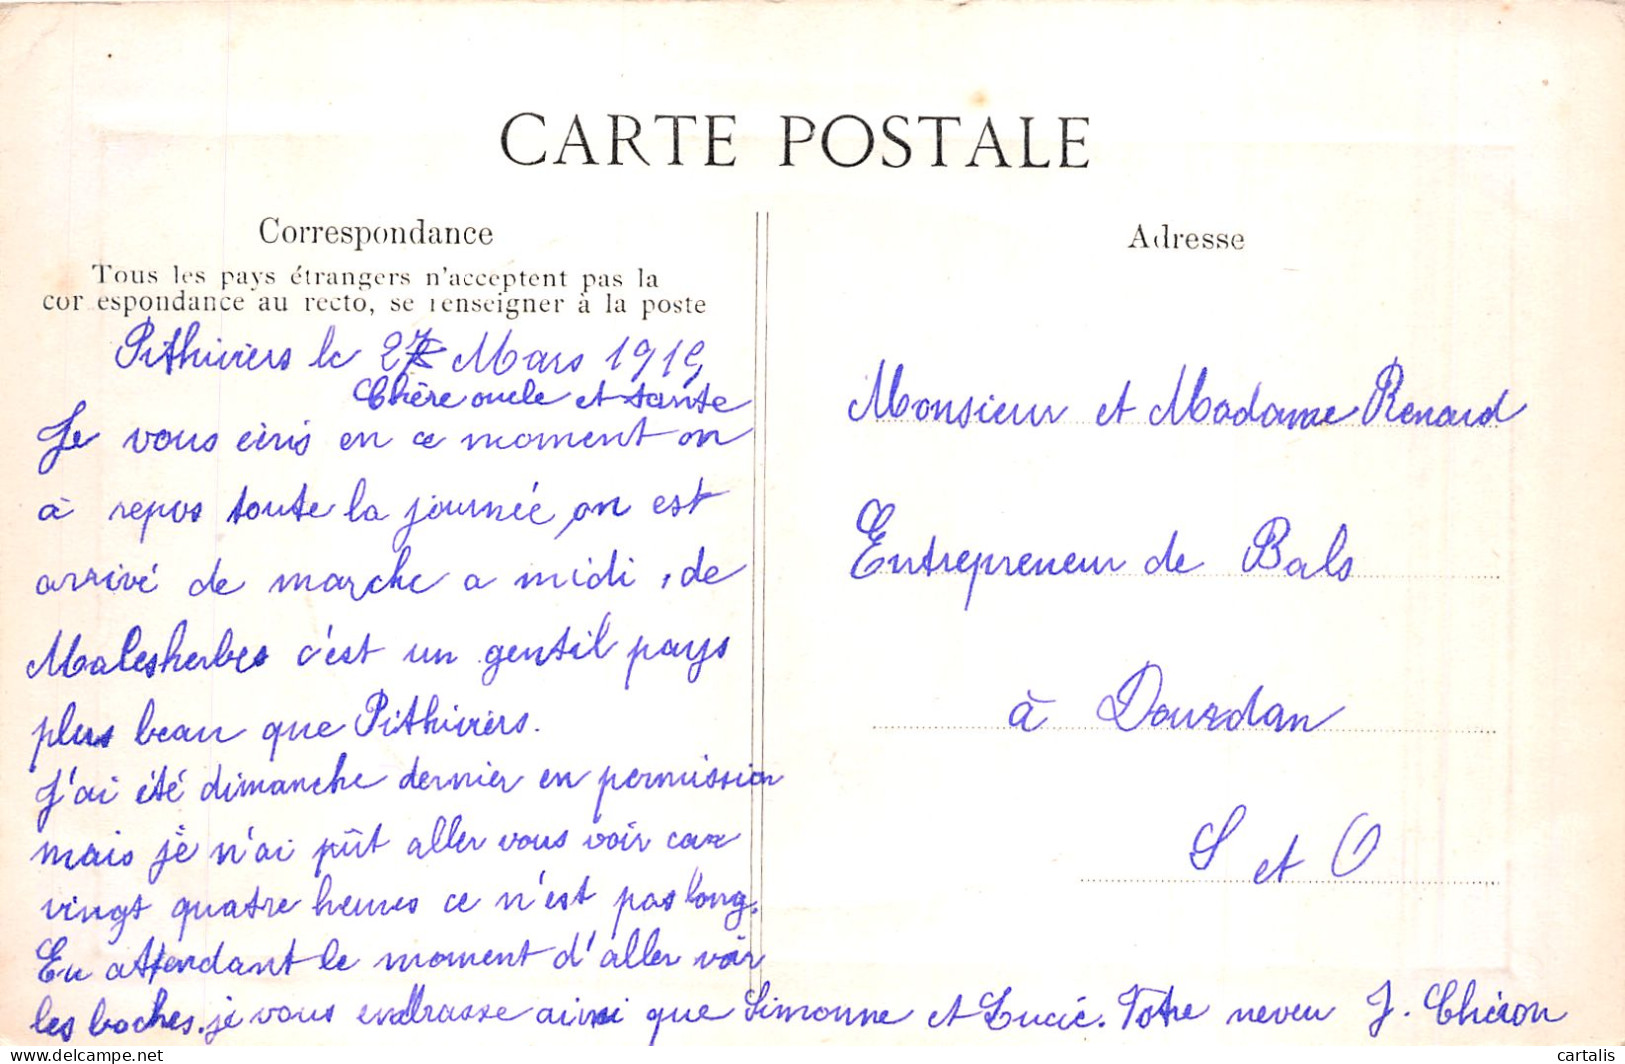 CARTE POSTALE
Correspondance
Tous les pays étrangers n'acceptent pas la
cor espondance au recto, se renseigner à la poste
Pithiviers le 27 Mars 1919
Chère oncle et tante
Je vous éiris en ce moment on
à repos toute la journée on est
arrivé de marche a midi, de
Malesherbes c'est un gentil pays
plus beau que Pithiviers.
J'ai été dimanche dernier en permission
mais je n'ai pût aller vous voir car
vingt quatre heures ce n'est pas long.
En attendant le moment d'aller voir
les boches. je vous embrasse ainsi que Simonne et Lucie. Votre neveu J. Chéron
Adresse
Monsieur et Madame Renard
Entrepreneur de Bals
à Dourdan
S et O
delcampe.net
cartalis